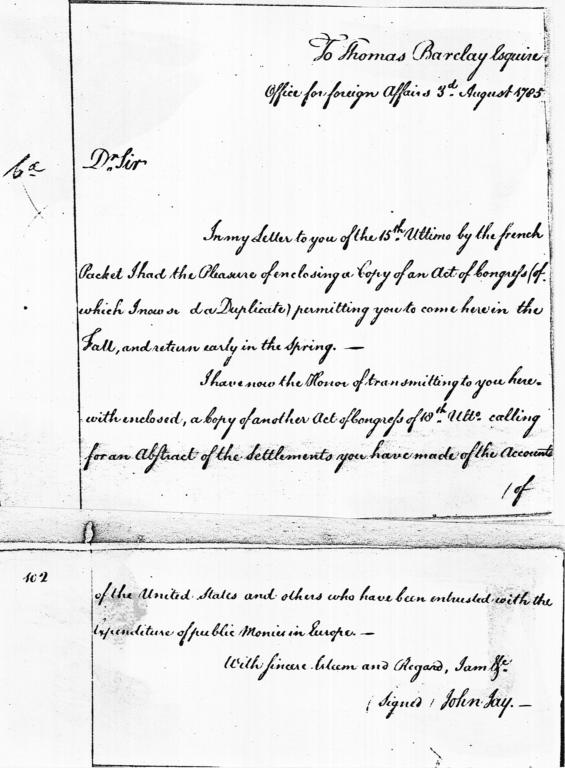 To Thomas Barclay Esquire
Office for foreign Affairs 3d. August 1785
Dr. Sir
In my Letter to you of the 15th. Ultimo by the french
Packet I had the Pleasure of enclosing a Copy of an Act of Congress (of
which I now se d a Duplicate) permitting you to come here in the
Fall, and return early in the Spring. —
I have now the Honor of transmitting to you here-
with enclosed, a Copy of another Act of Congress of 18th. Ulto. calling
for an Abstract of the Settlements you have made of the Accounts
/ of
102
of the United States and others who have been entrusted with the
Expenditure of public Monies in Europe. —
With sincere Esteem and Regard, I am &c.
(Signed) John Jay. —